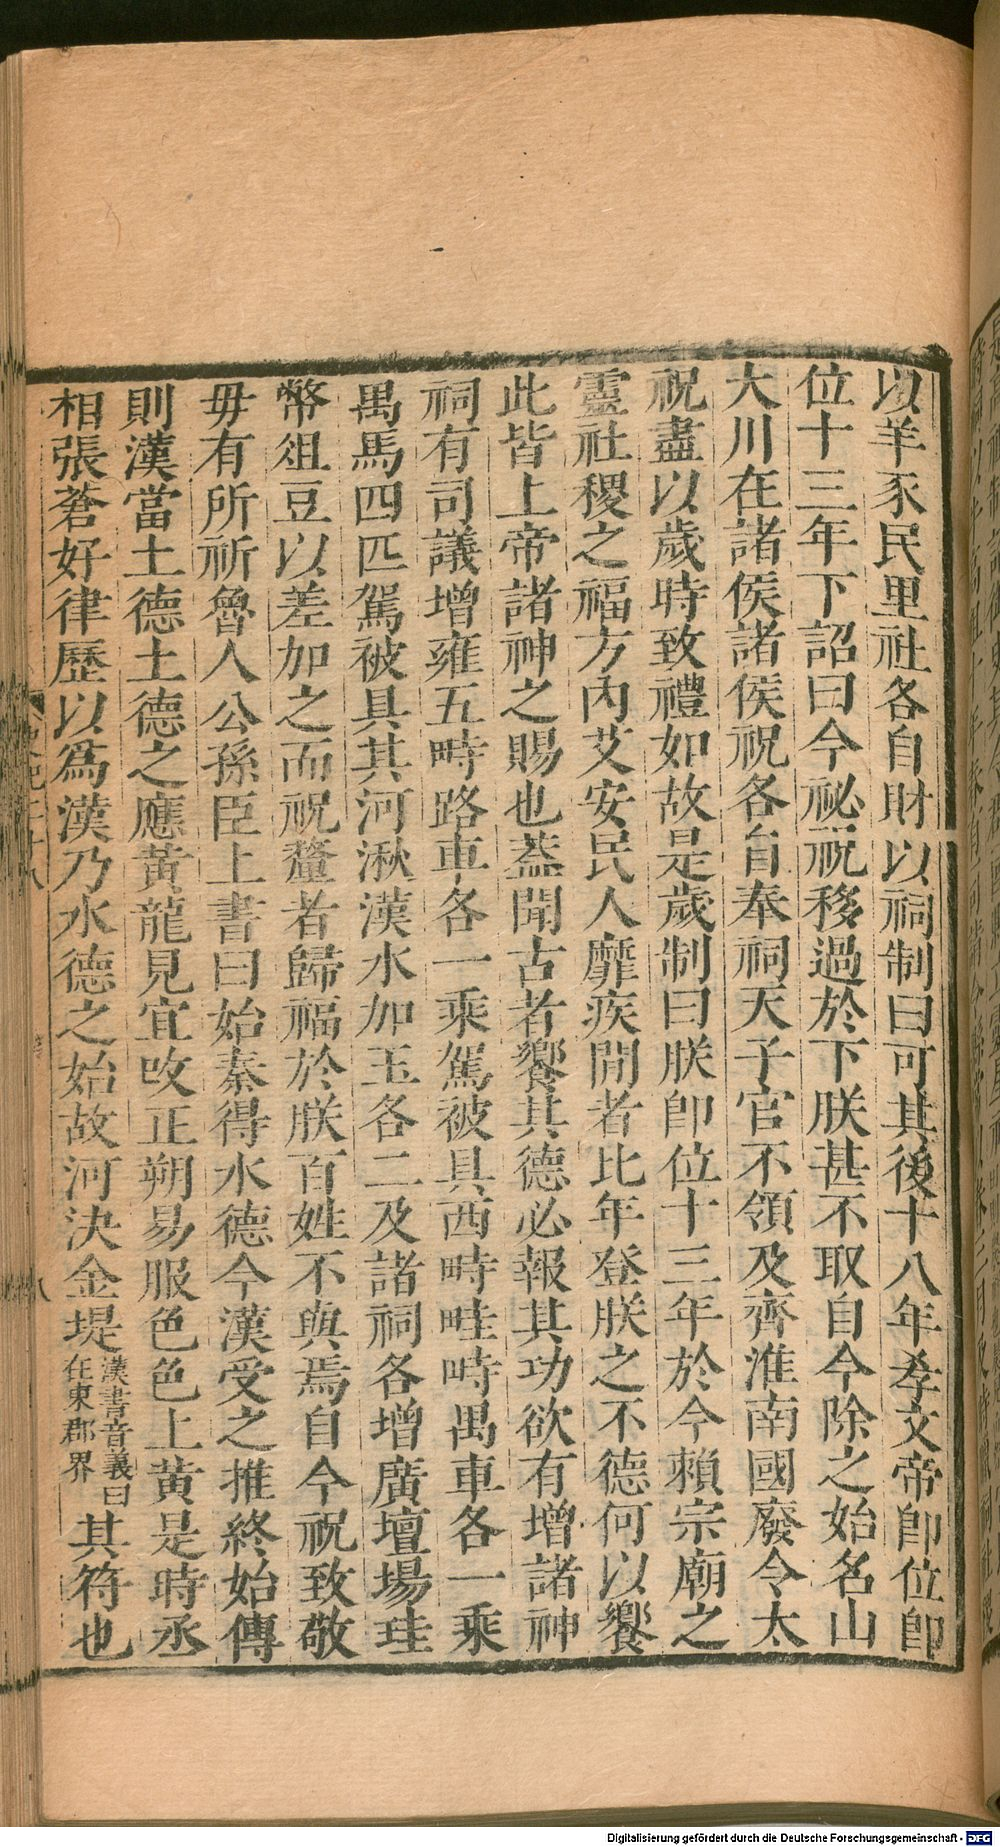 以羊豕民里社各自財以祠制曰可其後十八年孝文帝卽位卽
位十三年下詔曰今祕祝移過於下朕甚不取自今除之始名山
大川在諸侯諸侯祝各自奉祠天子官不領及齊淮南國廢令太
祝盡以歲時致禮如故是歲制曰朕卽位十三年於今賴宗廟之
靈社稷之福方內艾安民人靡疾間者比年登朕之不德何以饗
此皆上帝諸神之賜也葢聞古者饗其德必報其功欲有增諸神
祠有司議增雍五畤路車各一乘駕被具西畤畦畤禺車各一乘
禺馬四匹駕被具其河湫漢水加玉各二及諸祠各增廣壇場珪
幣俎豆以差加之而祝釐者歸福於朕百姓不與焉自今祝致敬
毋有所祈魯人公孫臣上書曰始秦得水德今漢受之推終始傳
則漢當土德土德之應黃龍見宜改正朔易服色色上黃是時丞
相張蒼好律歷以爲漢乃水德之始故河決金堤漢書音義曰在東郡界其符也
八
Digitalisierung gefördert durch die Deutsche Forschungsgemeinschaft - DFG